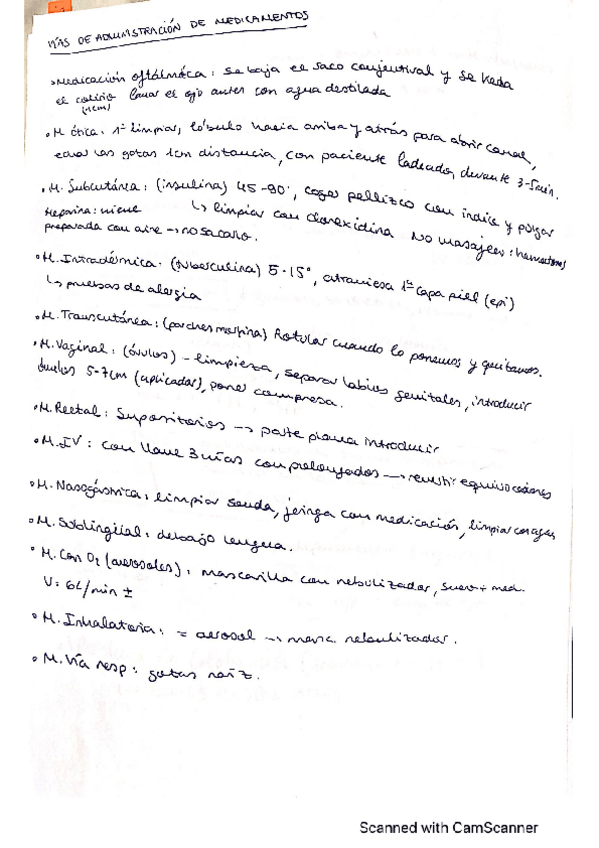 VÍAS DE ADMINISTRACIÓN DE MEDICAMENTOS
Medicación oftálmica: se baja el saco conjuntival y se
el colirio lavar el ojo antes con agua destilada
(1cm)
M. ótica: 1º limpiar, lóbulo hacia arriba y atrás para abrir canal,
echar las gotas 1cm distancia, con paciente ladeado, durante 3-5 min.
M. Subcutánea: (insulina) 45-90º, coger pellizco con índice y pulgar
Heparina: viene ↳ limpiar con clorexidina No masajear: hematomas
preparada con aire → no sacarlo.
M. Intradérmica: (tuberculina) 5-15º, atraviesa 1ª capa piel (epi)
↳ pruebas de alergia
M. Transcutánea: (parches morfina) Rotular cuando lo ponemos y quitamos.
M. Vaginal: (óvulos) - limpieza, separar labios genitales, introducir
óvulos 5-7cm (aplicador), poner compresa.
M. Rectal: Supositorios → parte plana introducir
M. IV: con llave 3 vías con prolongadores → equivocaciones
M. Nasogástrica: limpiar sonda, jeringa con medicación, limpiar con agua
M. Sublingüal: debajo lengua.
M. Con O2 (aerosoles): mascarilla con nebulizador, suero + med.
V= 6L/min ±
M. Inhalatoria: = aerosol → masc. nebulizador.
M. Vía resp: gotas naríz.
Scanned with CamScanner